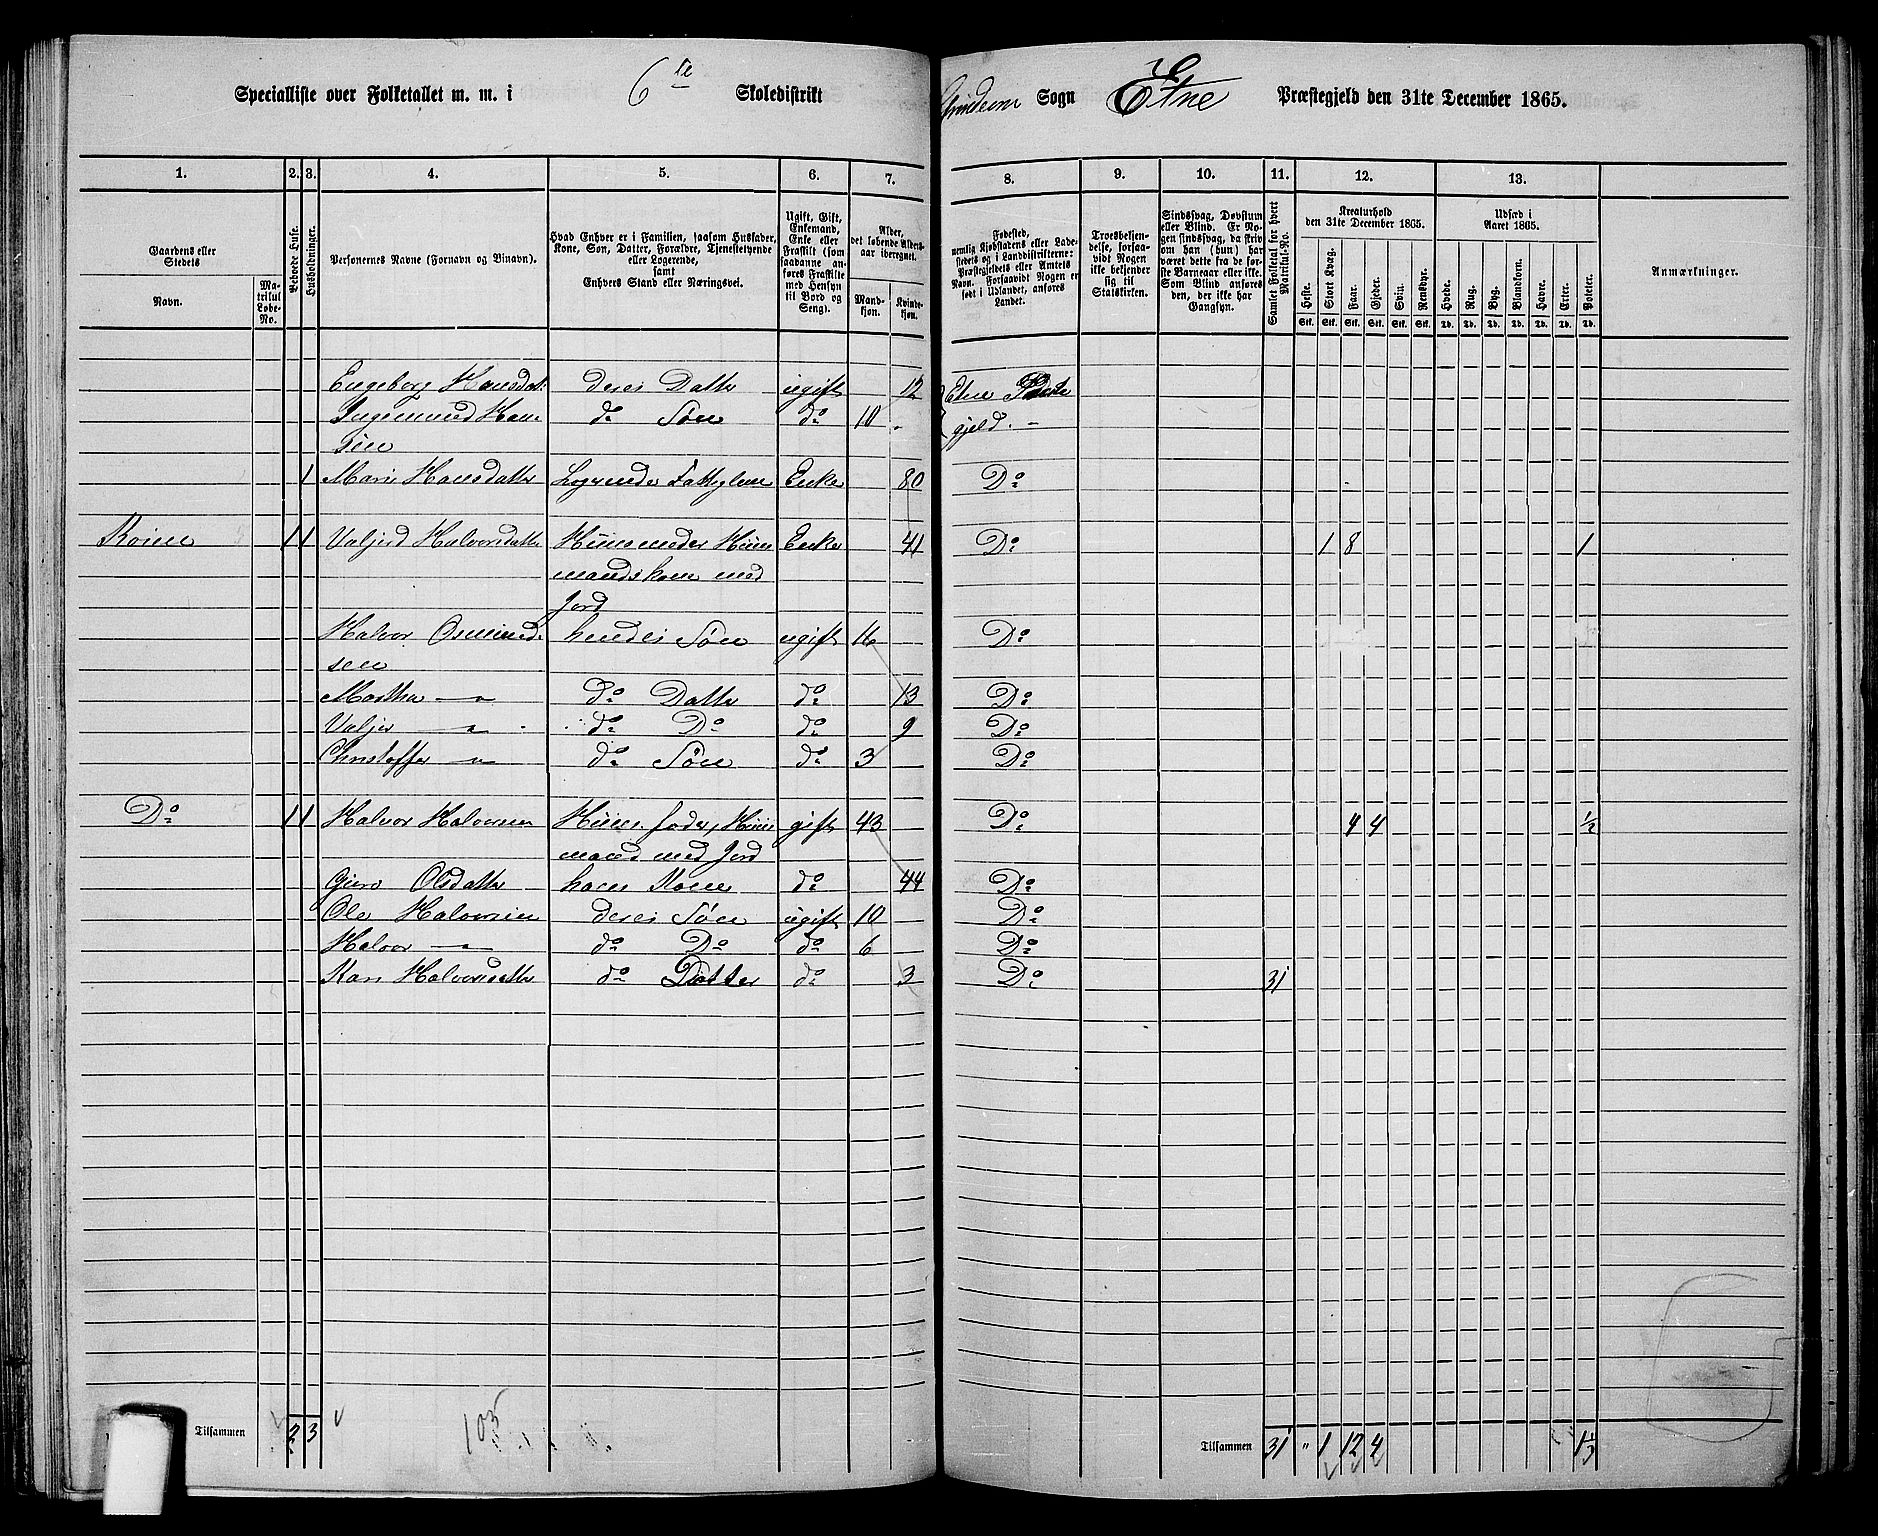 Specialliste over Folketallet m. m. i 6te Skoledistrikt
Sogn Etne Præstegjeld den 31te December 1865.
1. 2. 3. 4. 5. 6. 7. 8. 9. 10. 11. 12. 13.
Gaardens eller Stedets
Navn.
Matrikul Løbe-No.
Beboede Huse.
Husholdninger.
Personernes Navne (Fornavn og Binavn).
Hvad Enhver er i Familien, saasom Husfader,
Kone, Søn, Datter, Forældre, Tjenestetyende
eller Logerende,
samt
Enhvers Stand eller Næringsvei.
Ugift, Gift,
Enkemand,
Enke eller
Fraskilt (som
saadanne an-
føres Fraskilte
med Hensyn
til Bord og
Seng).
Alder,
det løbende Alders-
aar iberegnet.
Mand-
kjøn.
Kvinde-
kjøn.
Fødested,
nemlig Kjøbstadens eller Lade-
stedets og i Landdistrikterne:
Præstegjeldets eller Amtets
Navn. Forsaavidt Nogen er
født i Udlandet, anføres
Landet.
Troesbekjen-
delse, forsaa-
vidt Nogen
ikke bekjender
sig til
Statskirken.
Sindssvag, Døvstum
eller Blind. Er No-
gen sindssvag, da skriv
om han (hun) har
været dette fra de før-
ste Barneaar eller ikke.
Som Blind anføres
den, der ikke har
Gangsyn.
Samlet Folketal for hvert Matrikul-No.
Kreaturhold
den 31te December 1865.
Heste. Stort Kvæg. Faar. Gjeder. Svin. Rensdyr.
Stk. Stk. Stk. Stk. Stk. Stk.
Udsæd i
Aaret 1865.
Hvede. Rug. Byg. Blandkorn. Havre. Erter. Poteter.
Td. Td. Td. Td. Td. Td. Td.
Anmærkninger.
Engeborg Hansdat. deres Datter ugift 12 Etne Præste
Ingemund Han- do Søn do 10 gjeld.
sen
1 Mari Hansdatter Logerende Fattiglem Enke 80 Do
1 1 Valjerd Halvorsdatter Huusmoder Huus Enke 41 Do 1 8 1
mandskone med
Jord
Halvor Osmunds- hendes Søn ugift 16 Do
sen
Martha -"- do Datter do 13 Do
Valjer -"- do Do do 9 Do
Christoffer -"- do Søn do 3 Do
Do 1 1 Halvor Halvorsen Huusfader, Huus gift 43 Do 4 4 ½
mand med Jord
Guro Olsdatter hans Kone do 44 Do
Ole Halvorsen deres Søn ugift 10 Do
Halvor -"- do Do do 6 Do
Kari Halvorsdatter do Datter do 3 Do 31
Tilsammen 2 3 103
Tilsammen 31 " 1 12 4 1½